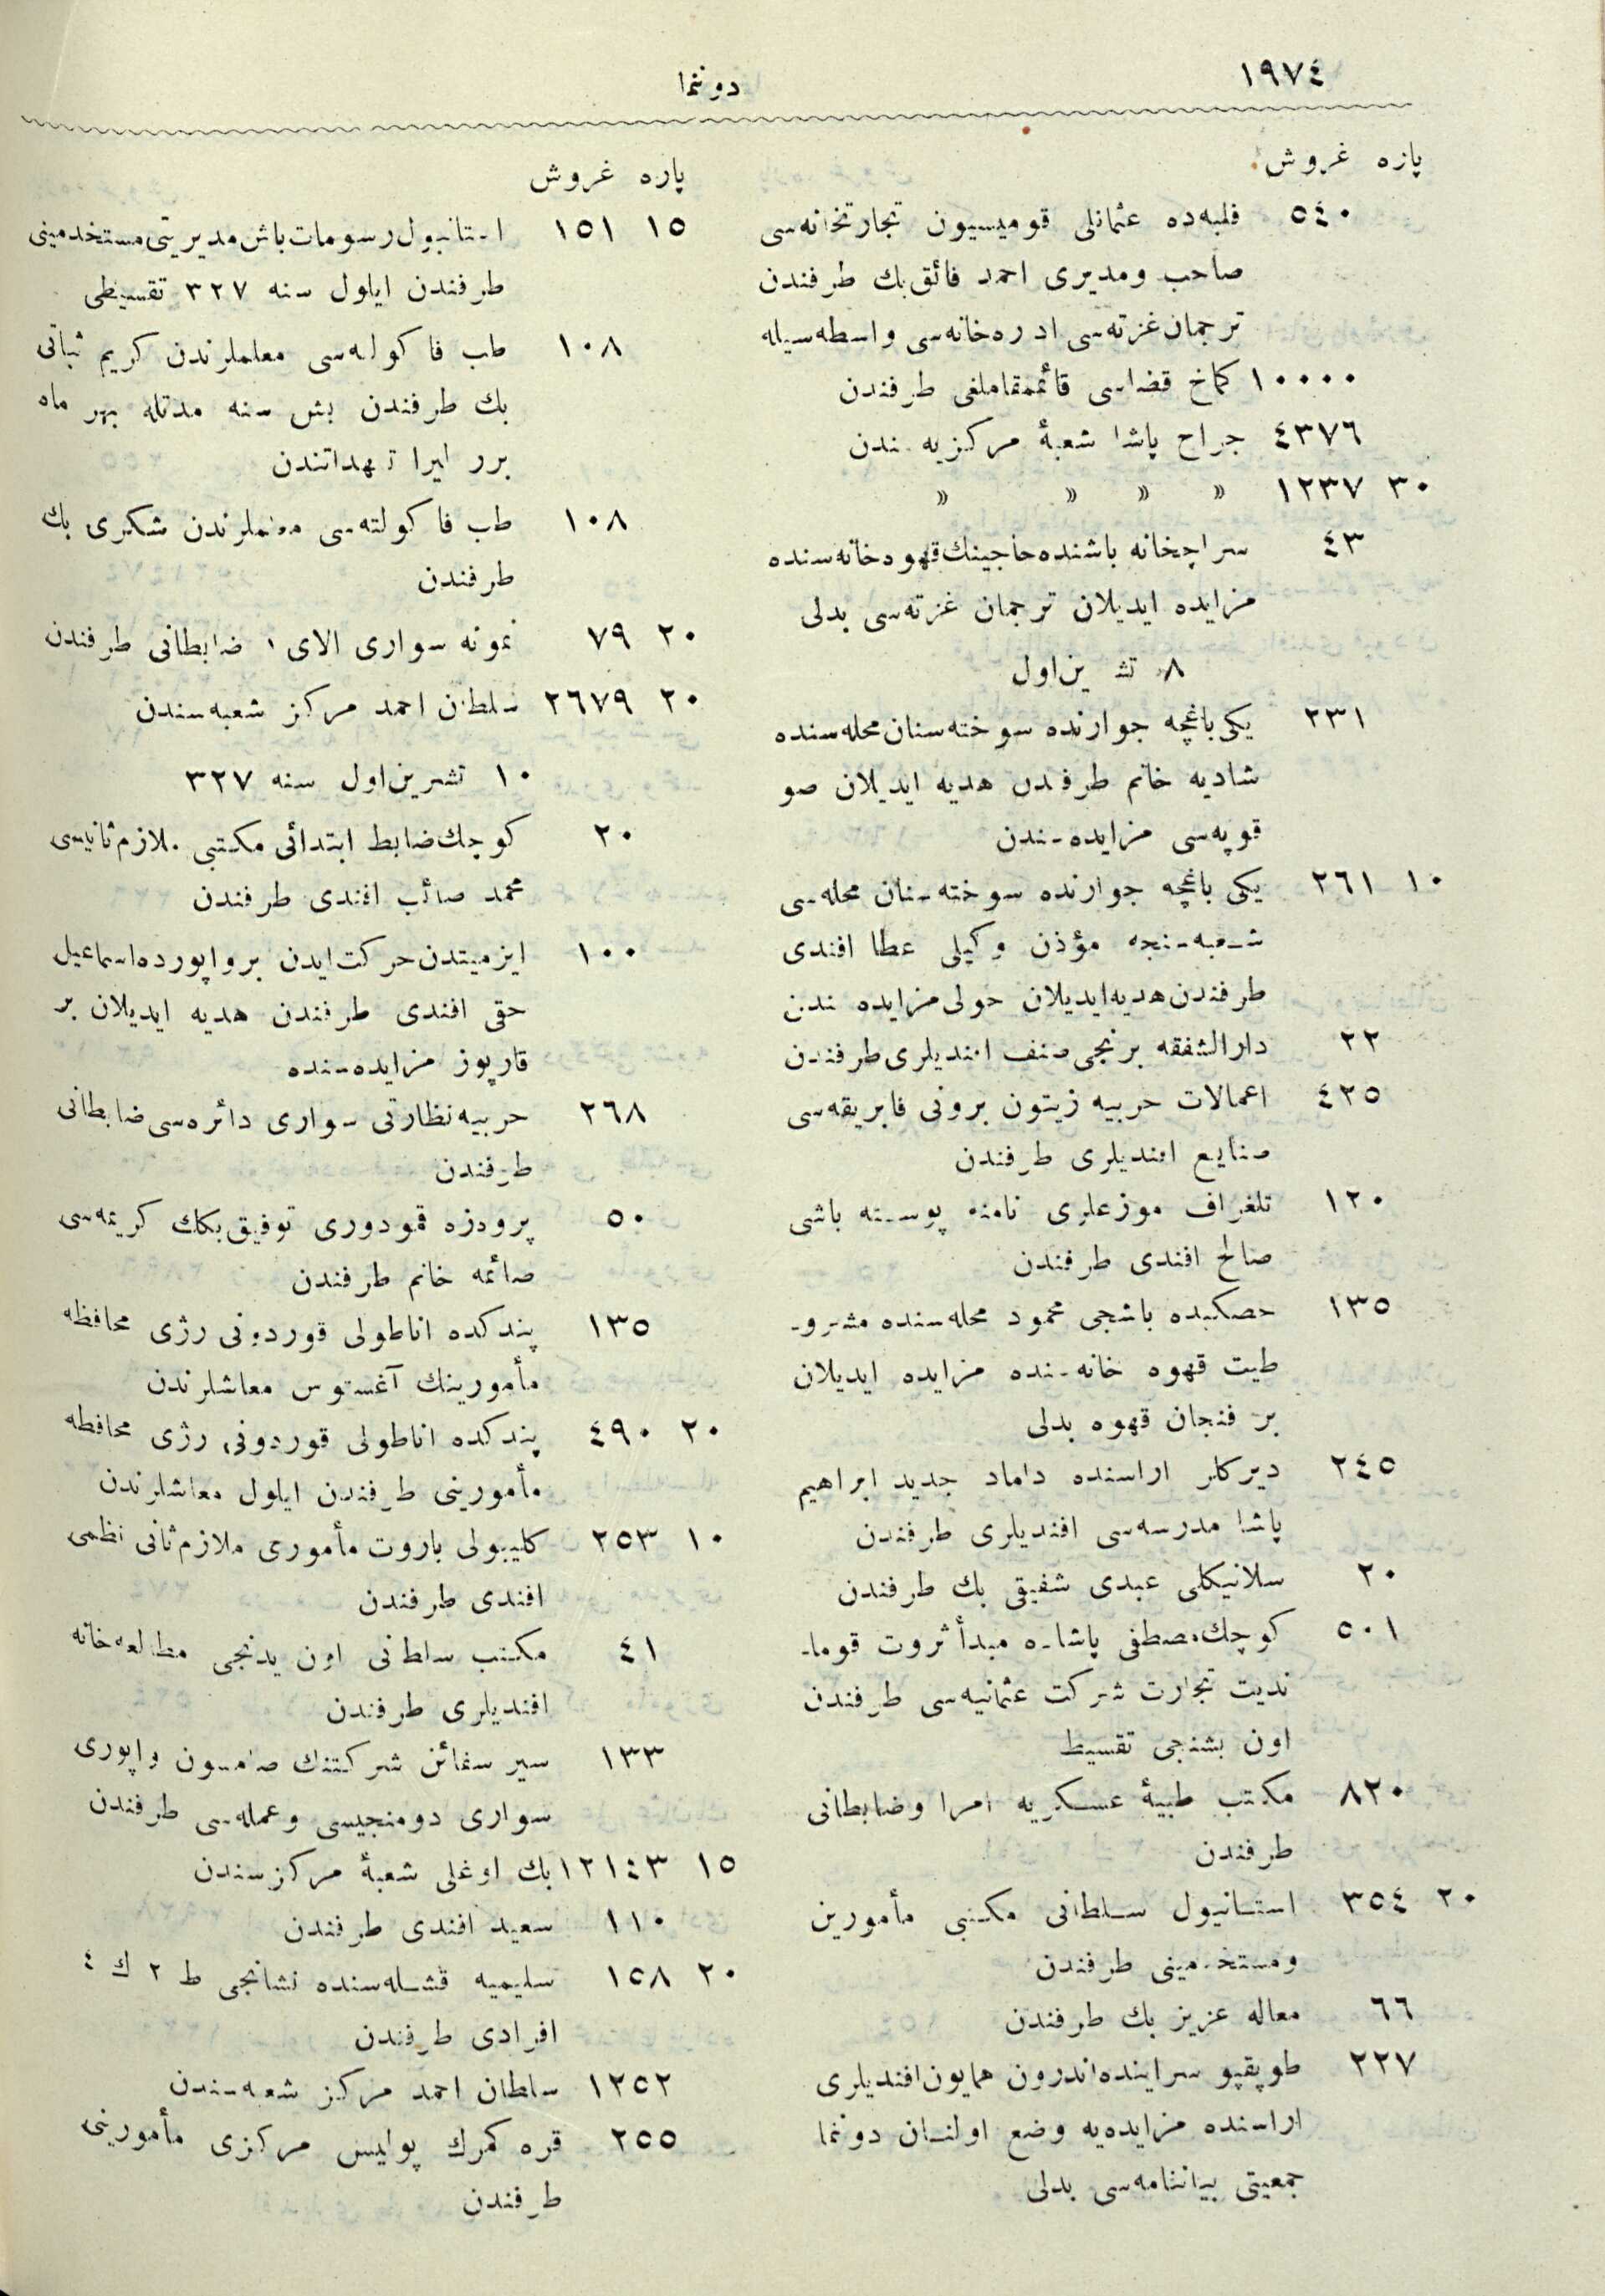 ١٩٧٤
دوننما
پاره غروش
٥٤٠ فلبه‌ده عثمانلی قومیسیون تجارتخانه‌سی
صاحب ومدیری احمد فائق بك طرفندن
ترجمان غزته‌سی اداره‌خانه‌سی واسطه‌سیله
١٠٠٠٠ كماخ قضاسی قائممقاملغی طرفندن
٤٣٧٦ جراح پاشا شعبهٔ مركزیه‌سندن
٣٠ ١٢٣٧ » » » »
٤٣ سراجخانه باشنده حاجینك قهوه‌خانه‌سنده
مزایده ایدیلان ترجمان غزته‌سی بدلی
٨ تشرین‌اول
٢٣١ یكی باغچه جوارنده سوخته سنان محله‌سنده
شادیه خانم طرفندن هدیه ایدیلان صو
قوپه‌سی مزایده‌سندن
١٠ ٢٦١ یكی باغچه جوارنده سوخته سنان محله‌سی
شعبه‌سنجه مؤذن وكیلی عطا افندی
طرفندن هدیه ایدیلان حولی مزایده‌سندن
٢٢ دارالشفقه برنجی صنف افندیلری طرفندن
٤٢٥ اعمالات حربیه زیتون برونی فابریقه‌سی
صنایع افندیلری طرفندن
١٢٠ تلغراف موزعلری نامنه پوسته باشی
صالح افندی طرفندن
١٣٥ حصكیده باشجی محمود محله‌سنده مشرو‌-
طیت قهوه خانه‌سنده مزایده ایدیلان
بر فنجان قهوه بدلی
٢٤٥ دیركلر اراسنده داماد جدید ابراهیم
پاشا مدرسه‌سی افندیلری طرفندن
٢٠ سلانیكلی عبدی شفیقی بك طرفندن
٥٠١ كوچك مصطفی پاشاده مبدأ ثروت قوما-
ندیت تجارت شركت عثمانیه‌سی طرفندن
اون بشنجی تقسیط
٨٢٠ مكتب طبیهٔ عسكریه امرا وضابطانی
طرفندن
٢٠ ٣٥٤ استانبول سلطانی مكتبی مأمورین
ومستخدمینی طرفندن
٦٦ معاله عزیز بك طرفندن
٢٢٧ طوپقپو سراینده اندرون همایون افندیلری
اراسنده مزایده‌یه وضع اولنان دوننما
جمعیتی بیاننامه‌سی بدلی
پاره غروش
١٥ ١٥١ استانبول رسومات باش مدیریتی مستخدمینی
طرفندن ایلول سنه ٣٢٧ تقسیطی
١٠٨ طب فاكولته‌سی معلملرندن كریم ثباتی
بك طرفندن بش سنه مدتله بهر ماه
برر لیرا تعهداتندن
١٠٨ طب فاكولته‌سی معلملرندن شكری بك
طرفندن
٢٠ ٧٩ نمونه سواری الای ١ ضابطانی طرفندن
٢٠ ٢٦٧٩ سلطان احمد مركز شعبه‌سندن
١٠ تشرین‌اول سنه ٣٢٧
٢٠ كوچك ضابط ابتدائی مكتبی ملازم ثانیسی
محمد صائب افندی طرفندن
١٠٠ ازمیتدن حركت ایدن برواپورده اسماعیل
حقی افندی طرفندن هدیه ایدیلان بر
قارپوز مزایده‌سنده
٢٦٨ حربیه نظارتی سواری دائره‌سی ضابطانی
طرفندن
٥٠ پرودزه قمودوری توفیق بكك كریمه‌سی
صائمه خانم طرفندن
١٣٥ پندكده اناطولی قوردونی رژی محافظه
مأمورینك آغستوس معاشلرندن
٢٠ ٤٩٠ پندكده اناطولی قوردونی رژی محافظه
مأمورینی طرفندن ایلول معاشلرندن
١٠ ٢٥٣ كلیبولی باروت مأموری ملازم ثانی نظمی
افندی طرفندن
٤١ مكتب سلطانی اون یدنجی مطالعه‌خانه
افندیلری طرفندن
١٣٣ سیر سفائن شركتنك صامسون واپوری
سواری دومنجیسی وعمله‌سی طرفندن
١٥ ١٢١٤٣ بك اوغلی شعبهٔ مركزسندن
١١٠ سعید افندی طرفندن
٢٠ ١٥٨ سلیمیه قشله‌سنده نشانجی ط ٢ ك ٤
افرادی طرفندن
١٢٥٢ سلطان احمد مركز شعبه‌سندن
٢٥٥ قره كمرك پولیس مركزی مأمورینی
طرفندن